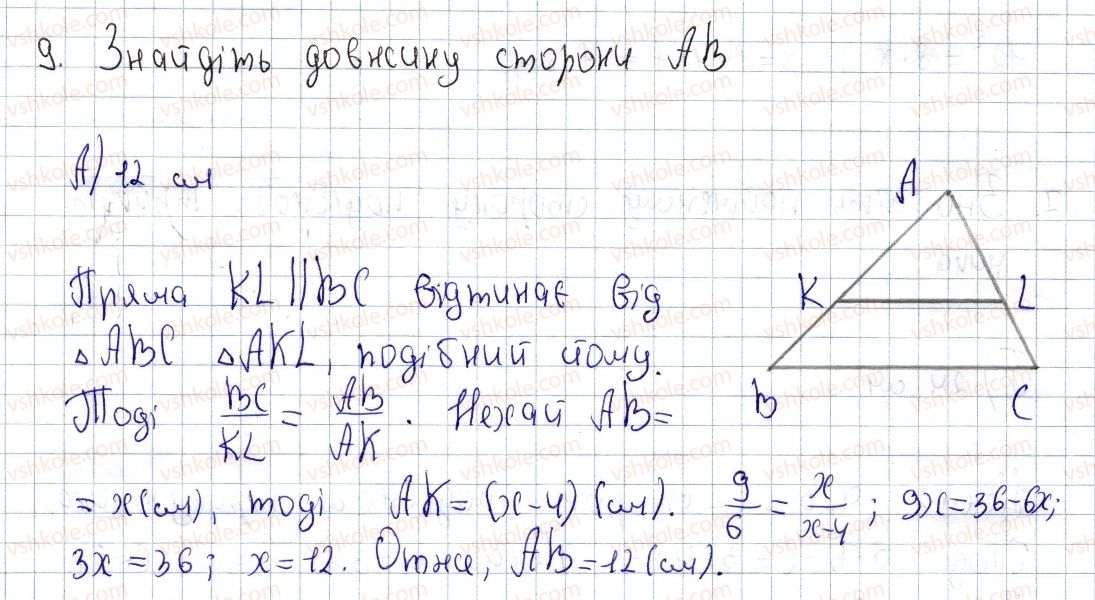 9. Знайдіть довжину сторони AB
А) 12 см
A
K L
B C
Пряма KL||BC відтинає від
△ABC △AKL, подібний йому.
Тоді BC/KL = AB/AK. Нехай AB=
= x(см), тоді AK = (x-4) (см). 9/6 = x/x-4; 9x=36-6x;
3x = 36; x = 12. Отже, AB=12(см).